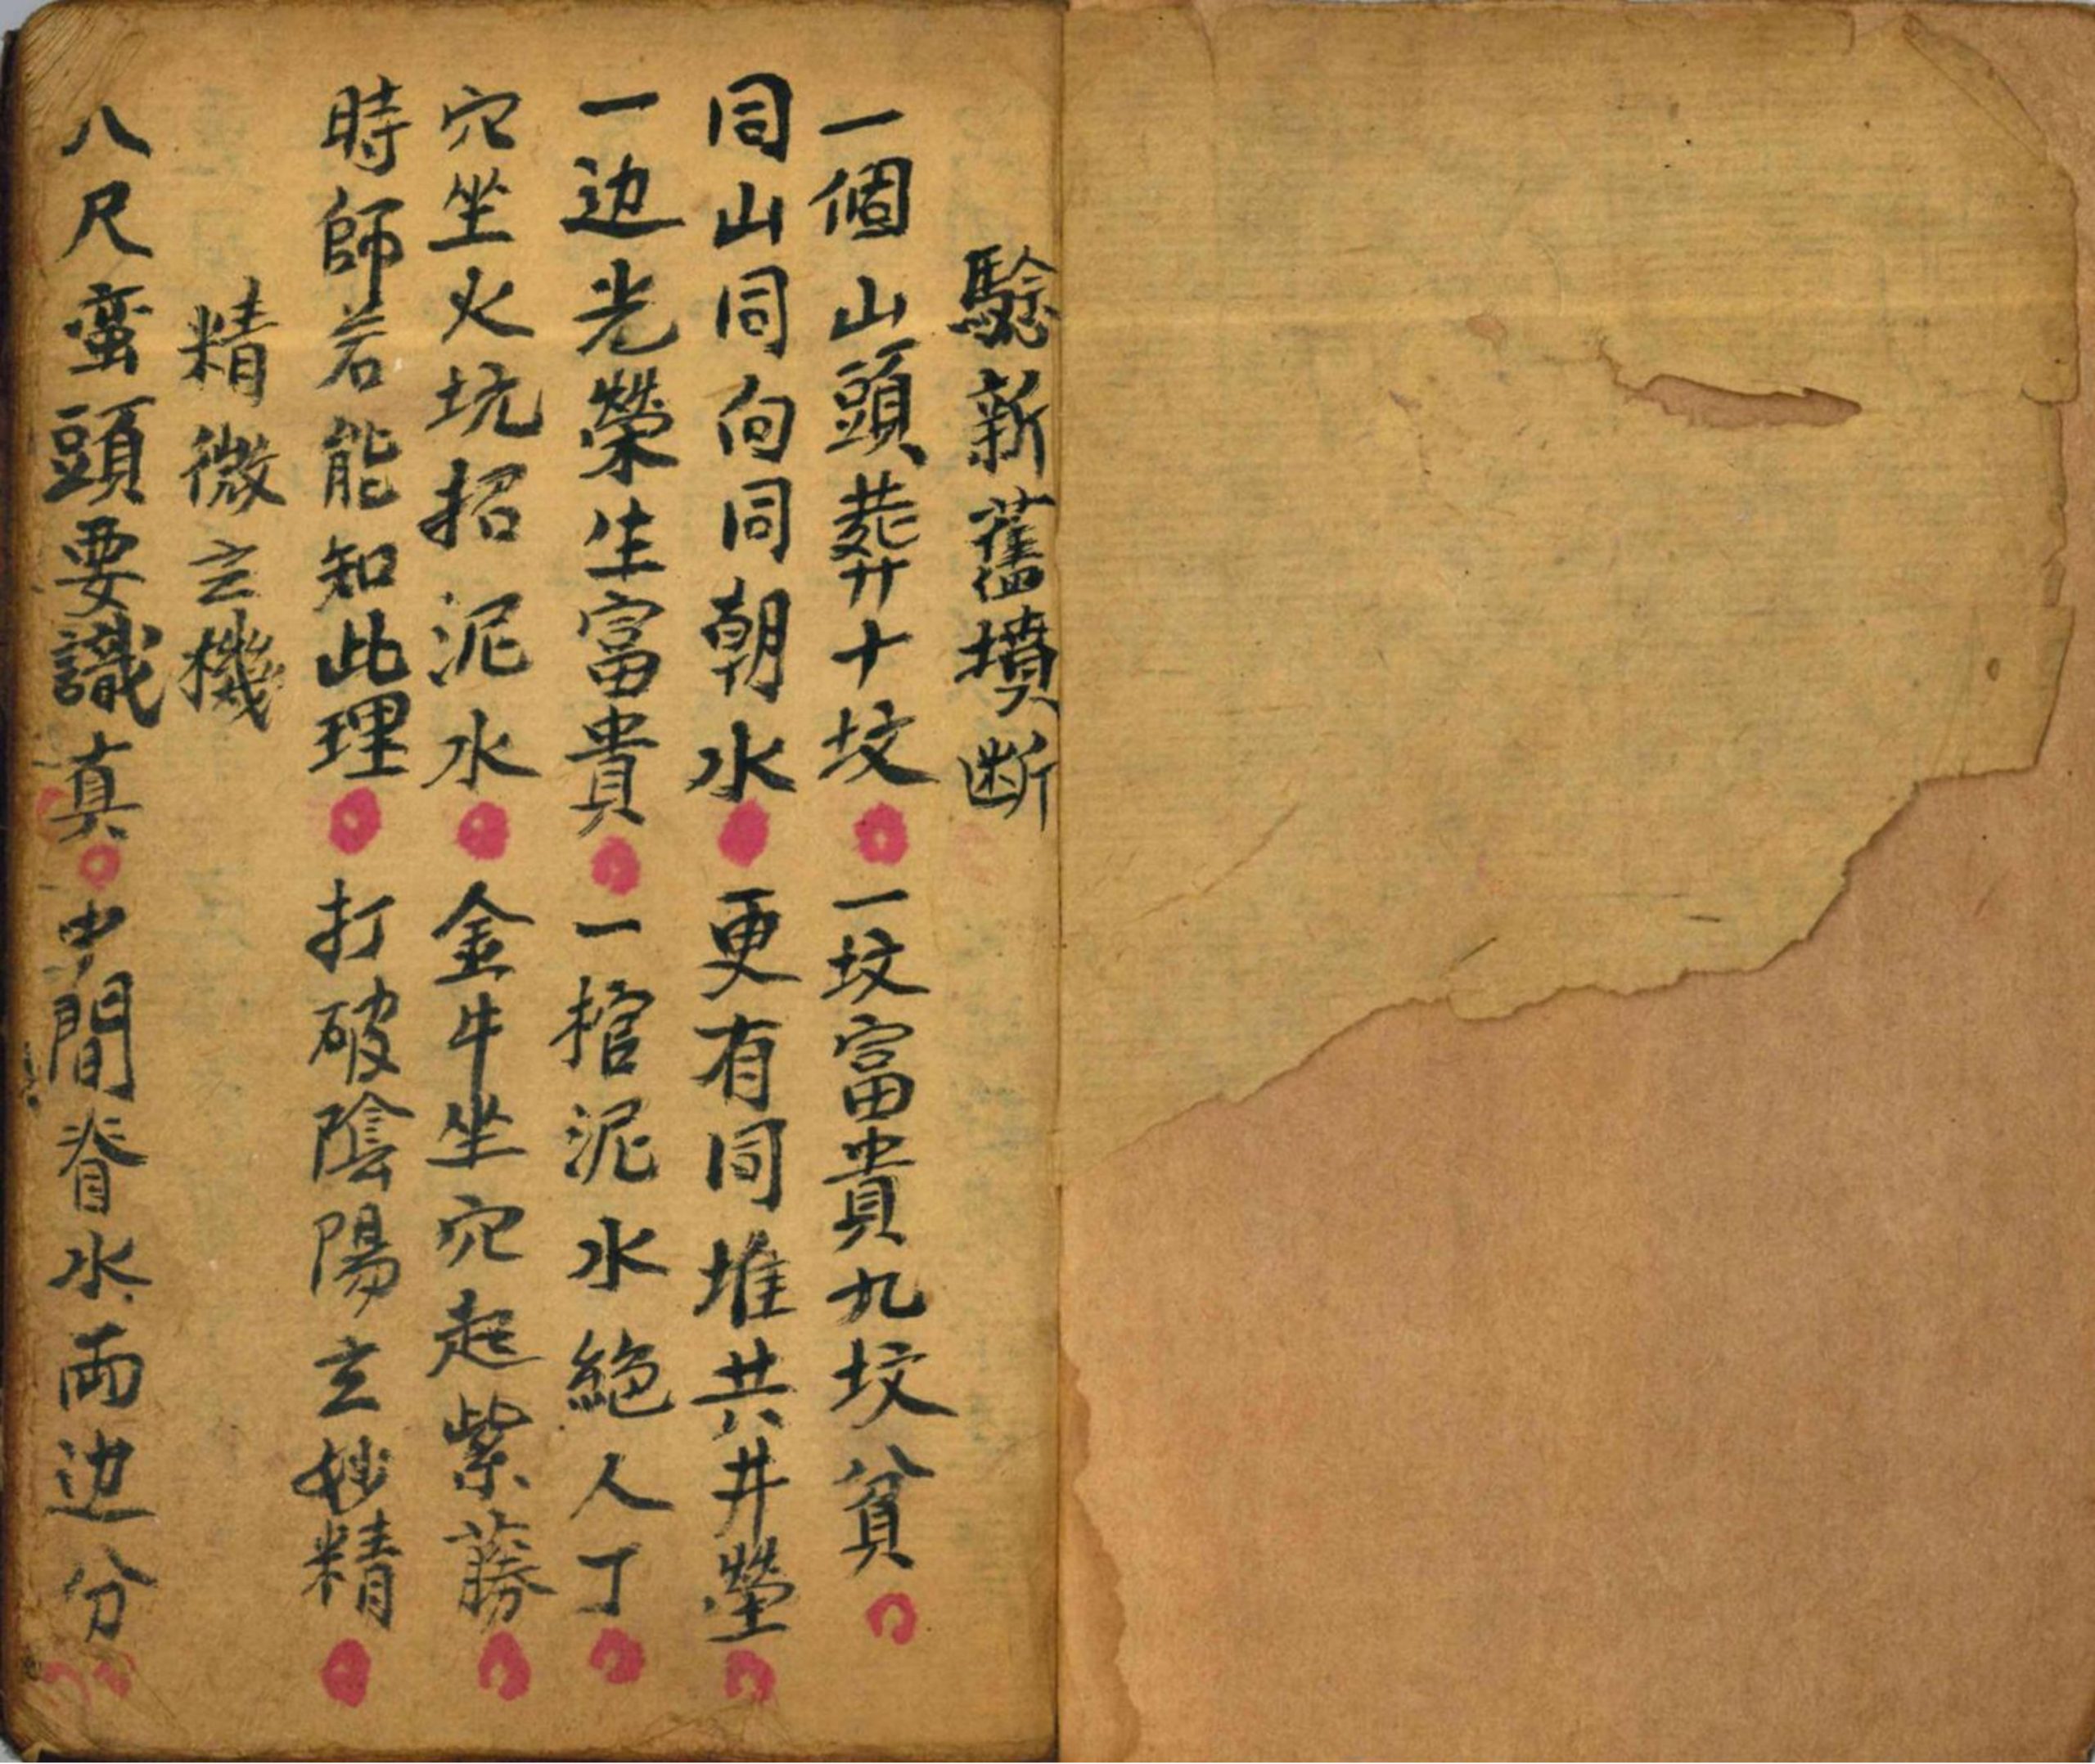 騐新舊墳断
一個山頭葬十坟一坟富貴九坟貧
同山同向同朝水更有同堆共井塋
一边光榮生富貴一棺泥水絕人丁
穴坐火坑招泥水金牛坐穴起紫藤
時師若能知此理打破陰陽玄妙精
精微玄機
八尺蛮頭要識真中間脊水両边分